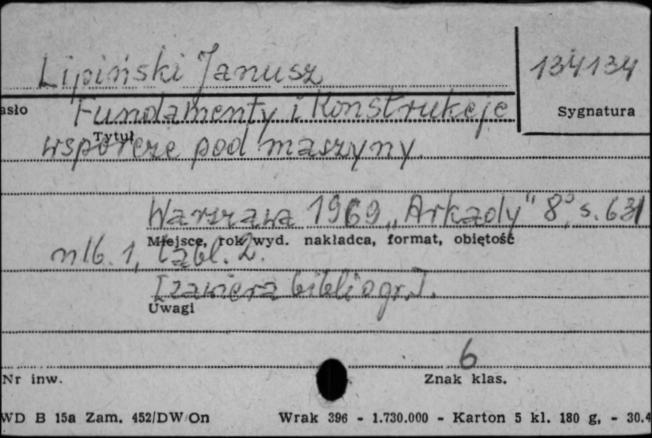 Lipiński Janusz
134134
asło
Fundamenty i Konstrukcje
Sygnatura
Tytuł
wsporcze pod maszyny.
Warszawa 1969 „Arkady" 8°, s. 631
Miejsce, rok wyd. nakładca, format, objętość
nlb. 1, tabl. 2.
[zawiera bibliogr.].
Uwagi
6
Nr inw.
Znak klas.
WD B 15a Zam. 452/DW/On Wrak 396 - 1.730.000 - Karton 5 kl. 180 g, - 30.4